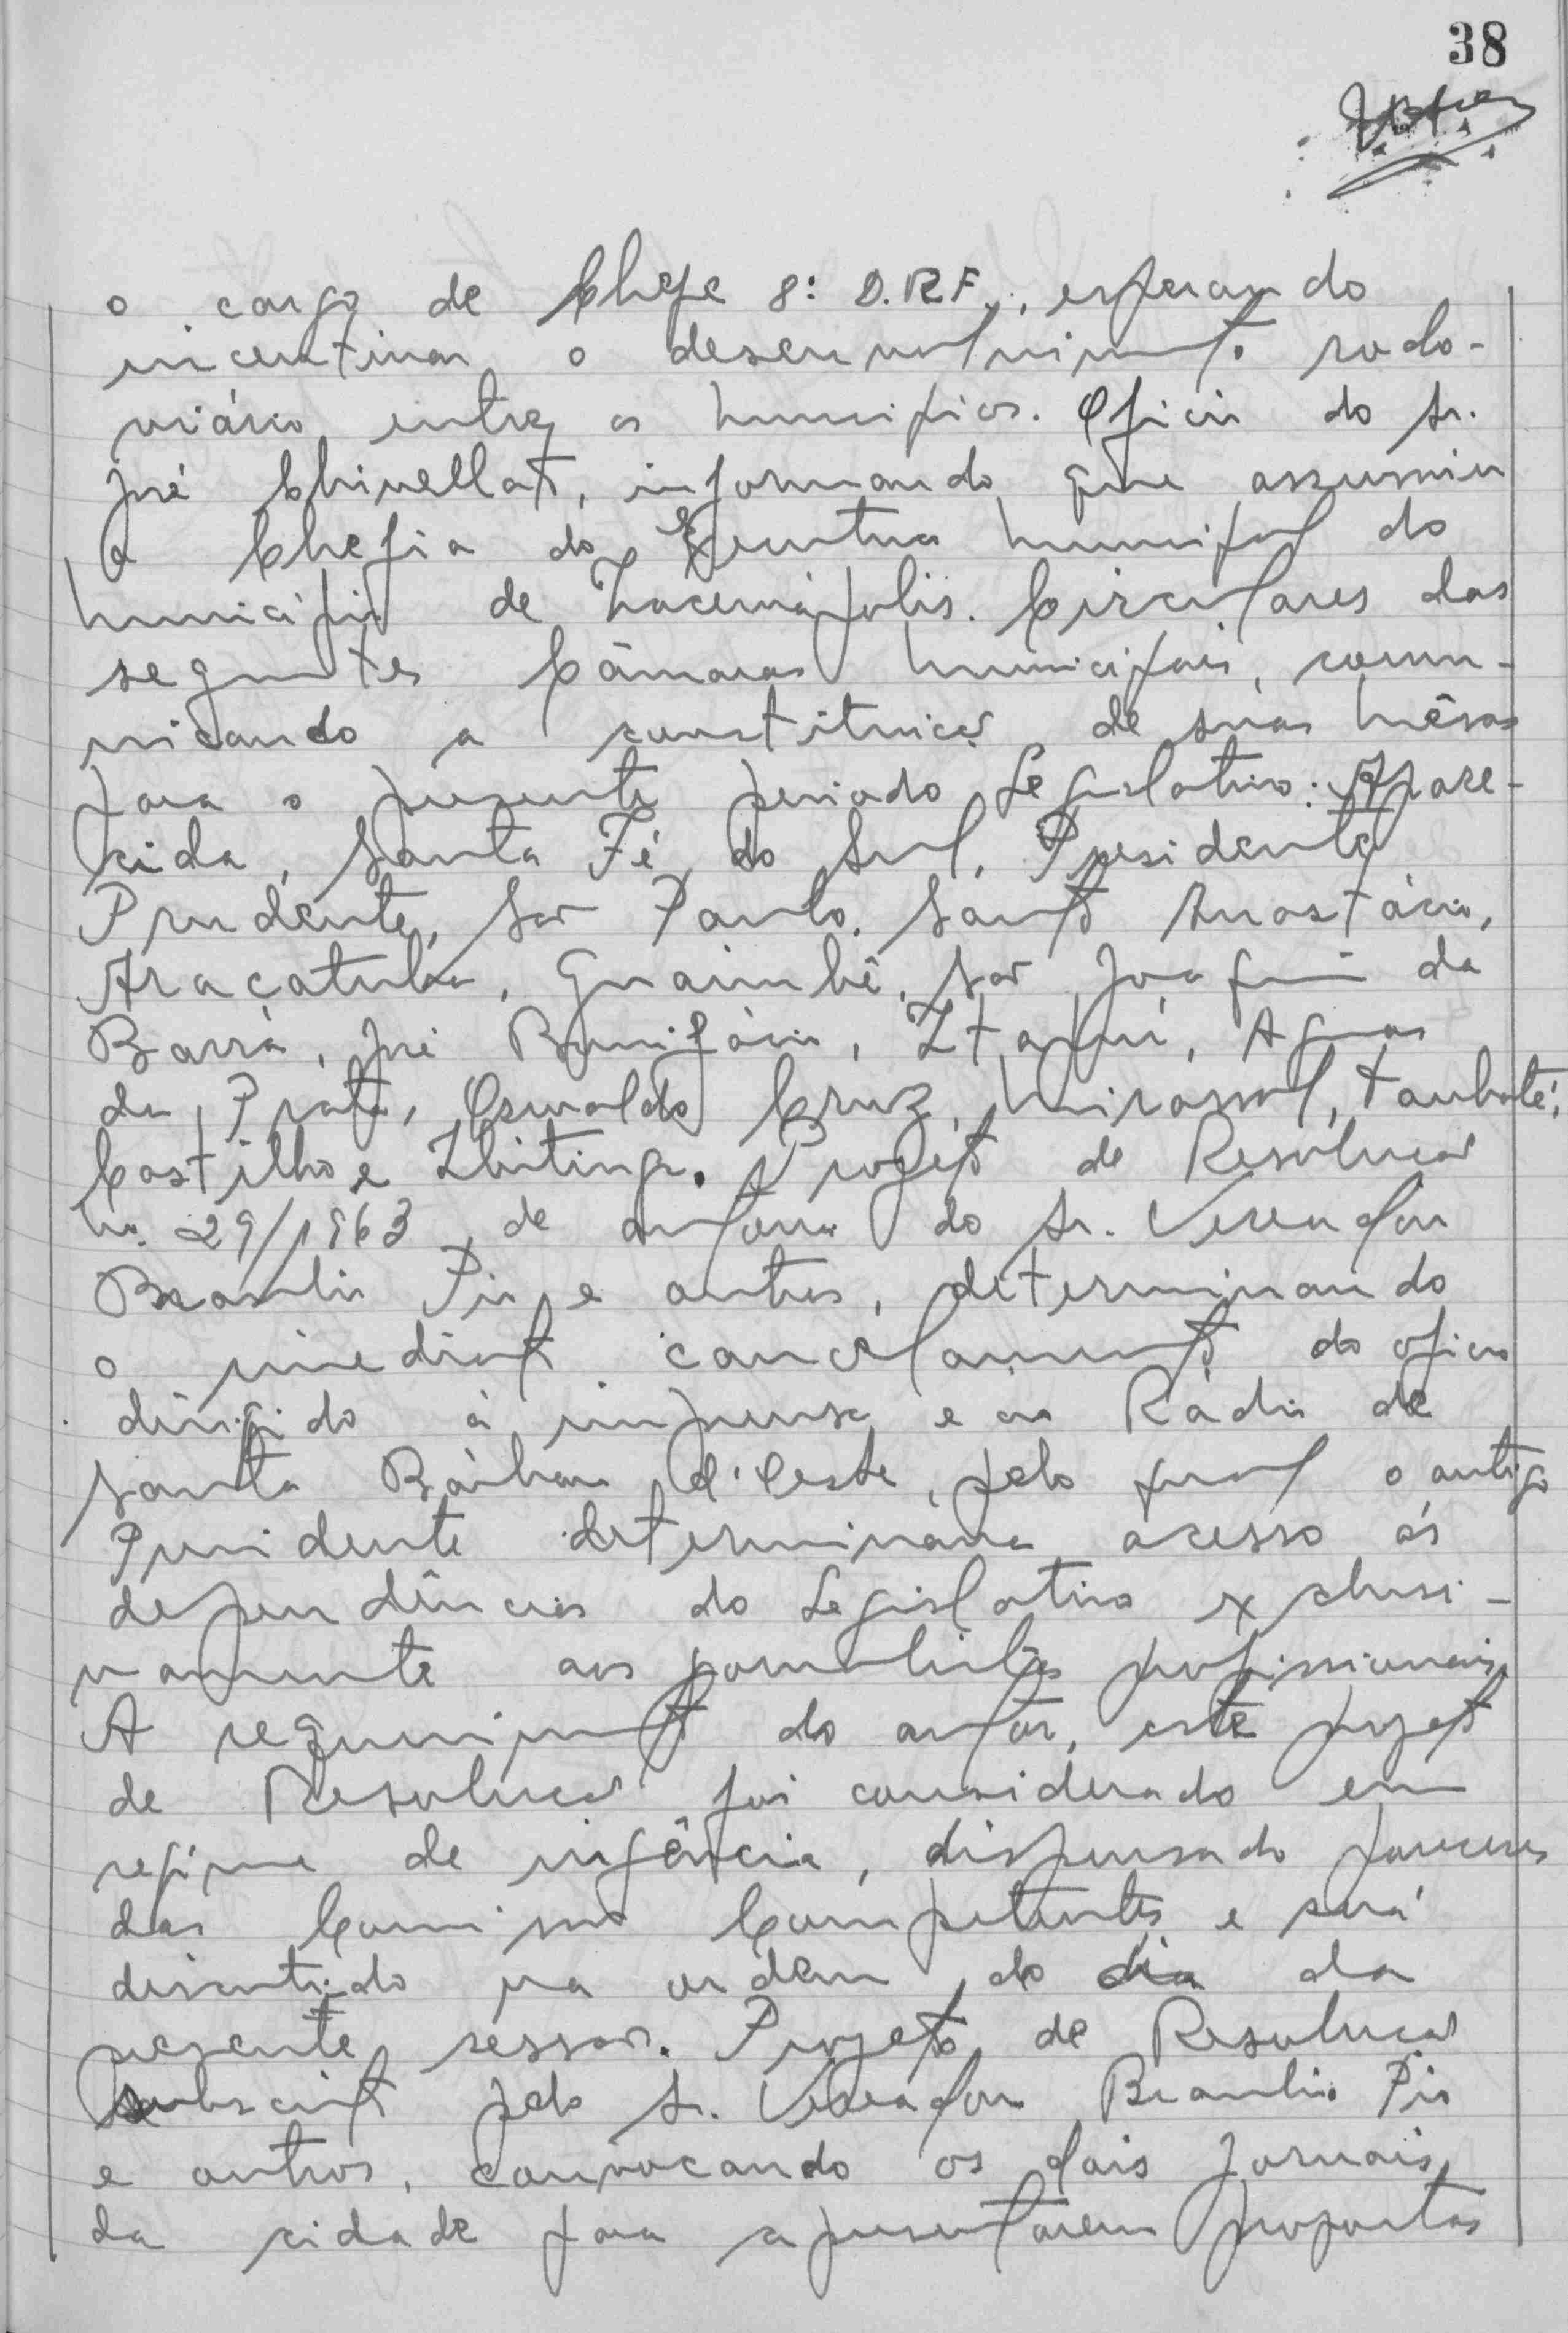 38
o cargo de Chefe 8: D.R.F., esperando
incentivar o desenvolvimento rodo-
viário entre os municípios. Ofício do Sr.
José Chinellato, informando que assumiu
a Chefia do Executivo municipal do
município de Iracemápolis. Circulares das
seguintes Câmaras municipais, comu-
nicando a constituição de suas mêsas
para o presente período Legislativo: Apare-
cida, Santa Fé do Sul, Presidente
Prudente, São Paulo, Santo Anastácio,
Araçatuba, Guaimbê, São Joaquim da
Barra, José Bonifácio, Itapuí, Aguas
da Prata, Oswaldo Cruz, Mirassol, Taubaté,
Castilho e Ibitinga. Projeto de Resolução
no. 29/1963, de autoria do Sr. Vereador
Braulio Pio e outros, determinando
o imediato cancelamento do oficio
dirigido à imprensa e ao Rádio de
Santa Bárbara d'Oeste, pelo qual o antigo
Presidente determinára acesso ás
dependências do Legislativo exclusi-
vamente aos jornalistas profissionais.
A requerimento do autor, este projeto
de Resolução foi considerado em
regime de urgência, dispensado pareceres
das Comissões Competentes e será
discutido na ordem do dia da
presente sessão. Projeto de Resolução
subscrito pelo Sr. Vereador Braulio Pio
e outros, convocando os dois jornais
da cidade para apresentarem propostas